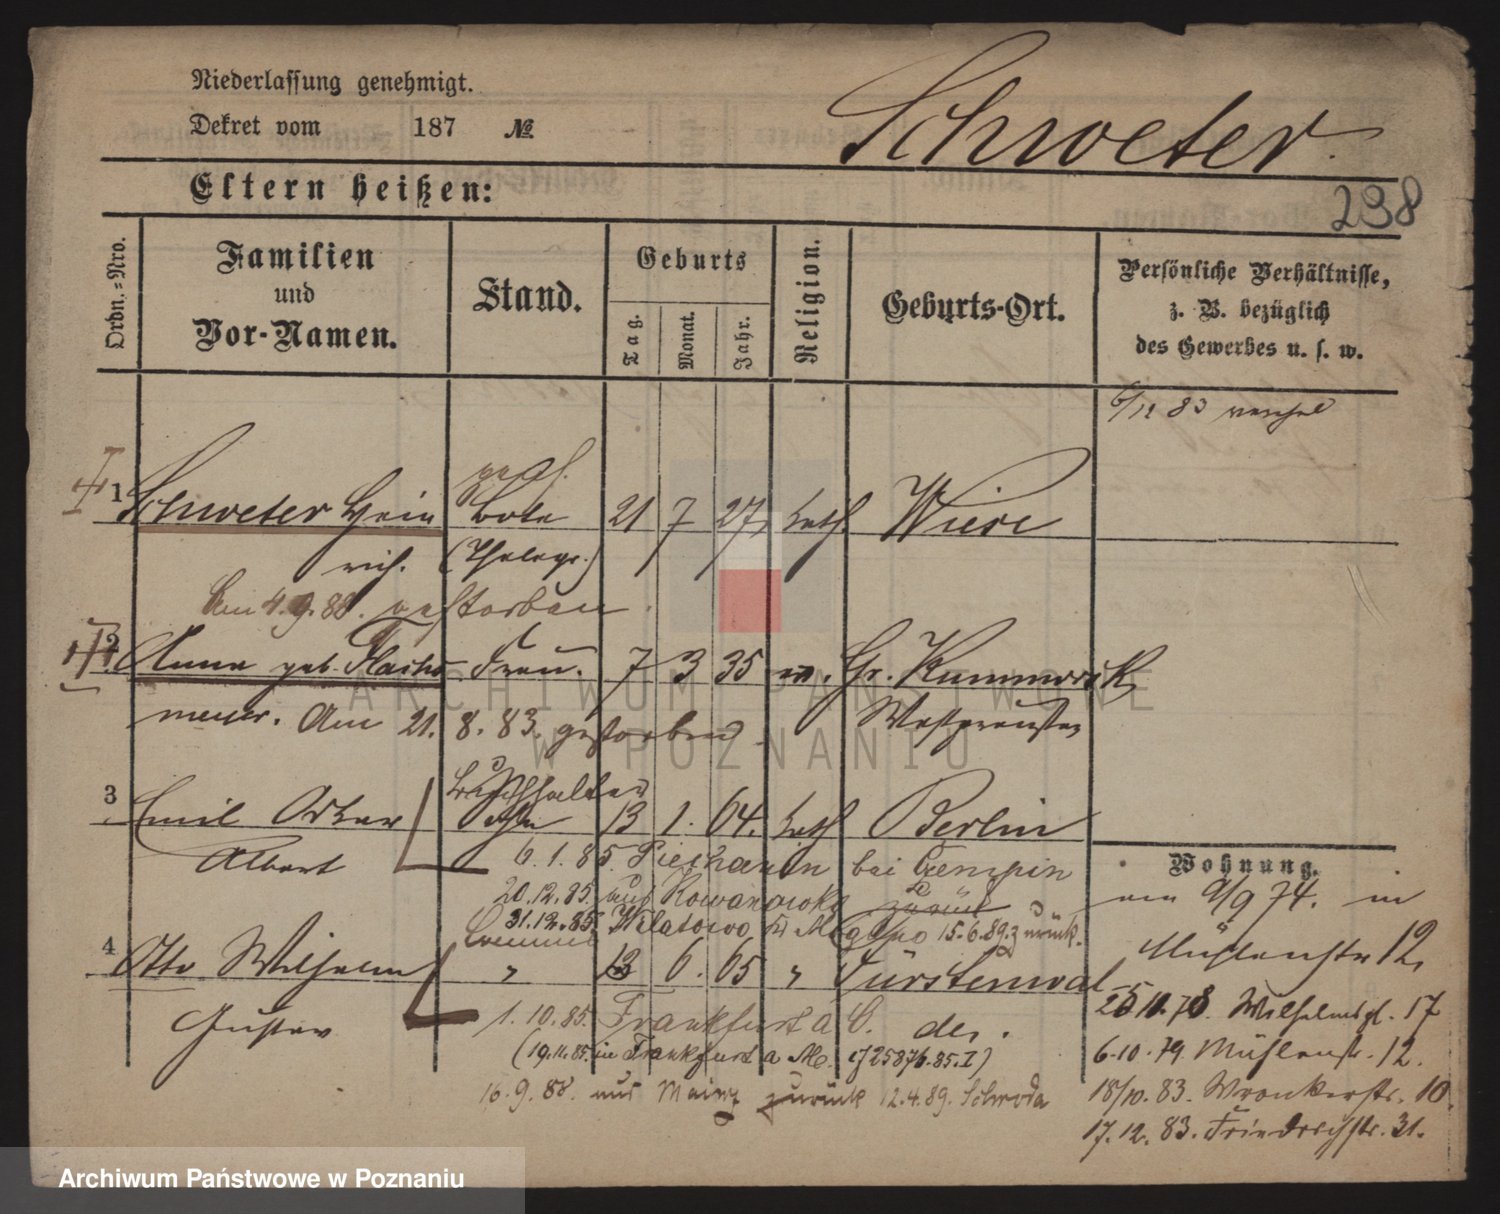 Niederlassung genehmigt.
Dekret vom 187 №
Schweter.
Eltern heißen:
238
Ordn.-Nro.
Familien und Vor-Namen.
Stand.
Geburts
Tag. Monat. Jahr.
Religion.
Geburts-Ort.
Persönliche Verhältnisse, z. B. bezüglich des Gewerbes u. s. w.
6/12 83
1 Schweter Hein Bote 21 7 27 kath. Wiese
rich. (Telegr.)
Am 4.9.88. gestorben.
2 Anna geb. Flacho- Frau. 7 3 35 ev. Gr. Kummorsk,
meyer. Am 21. 8. 83. gestorben Westpreußen
Buchhalter
3 Emil Oskar Sohn 13 1. 64. kath Berlin
Albert 6.1.85 Piechanin bei Czempin
Wohnung.
20.12.85. aus Kowanowko zurück
am 9/9 74. in
31.12.85. Wilatowo Kr Mogilno 15.6.89. zurück.
Mühlenstr 12,
4 Otto Wilhelm " 13 6. 65 " Fürstenwal-
Gustav 1. 10.85. Frankfurt a O. de.
25.11.78. Wilhelmspl. 17
(19.11.85. in Frankfurt a M. J 2587/6.85.I)
6.10.79. Mühlenstr. 12.
16.9.88. aus Mainz zurück 12.4.89. Schroda
18/10.83. Wronkerstr. 10.
17.12.83. Friedrichstr. 31.
ARCHIWUM PAŃSTWOWE
W POZNANIU
Archiwum Państwowe w Poznaniu